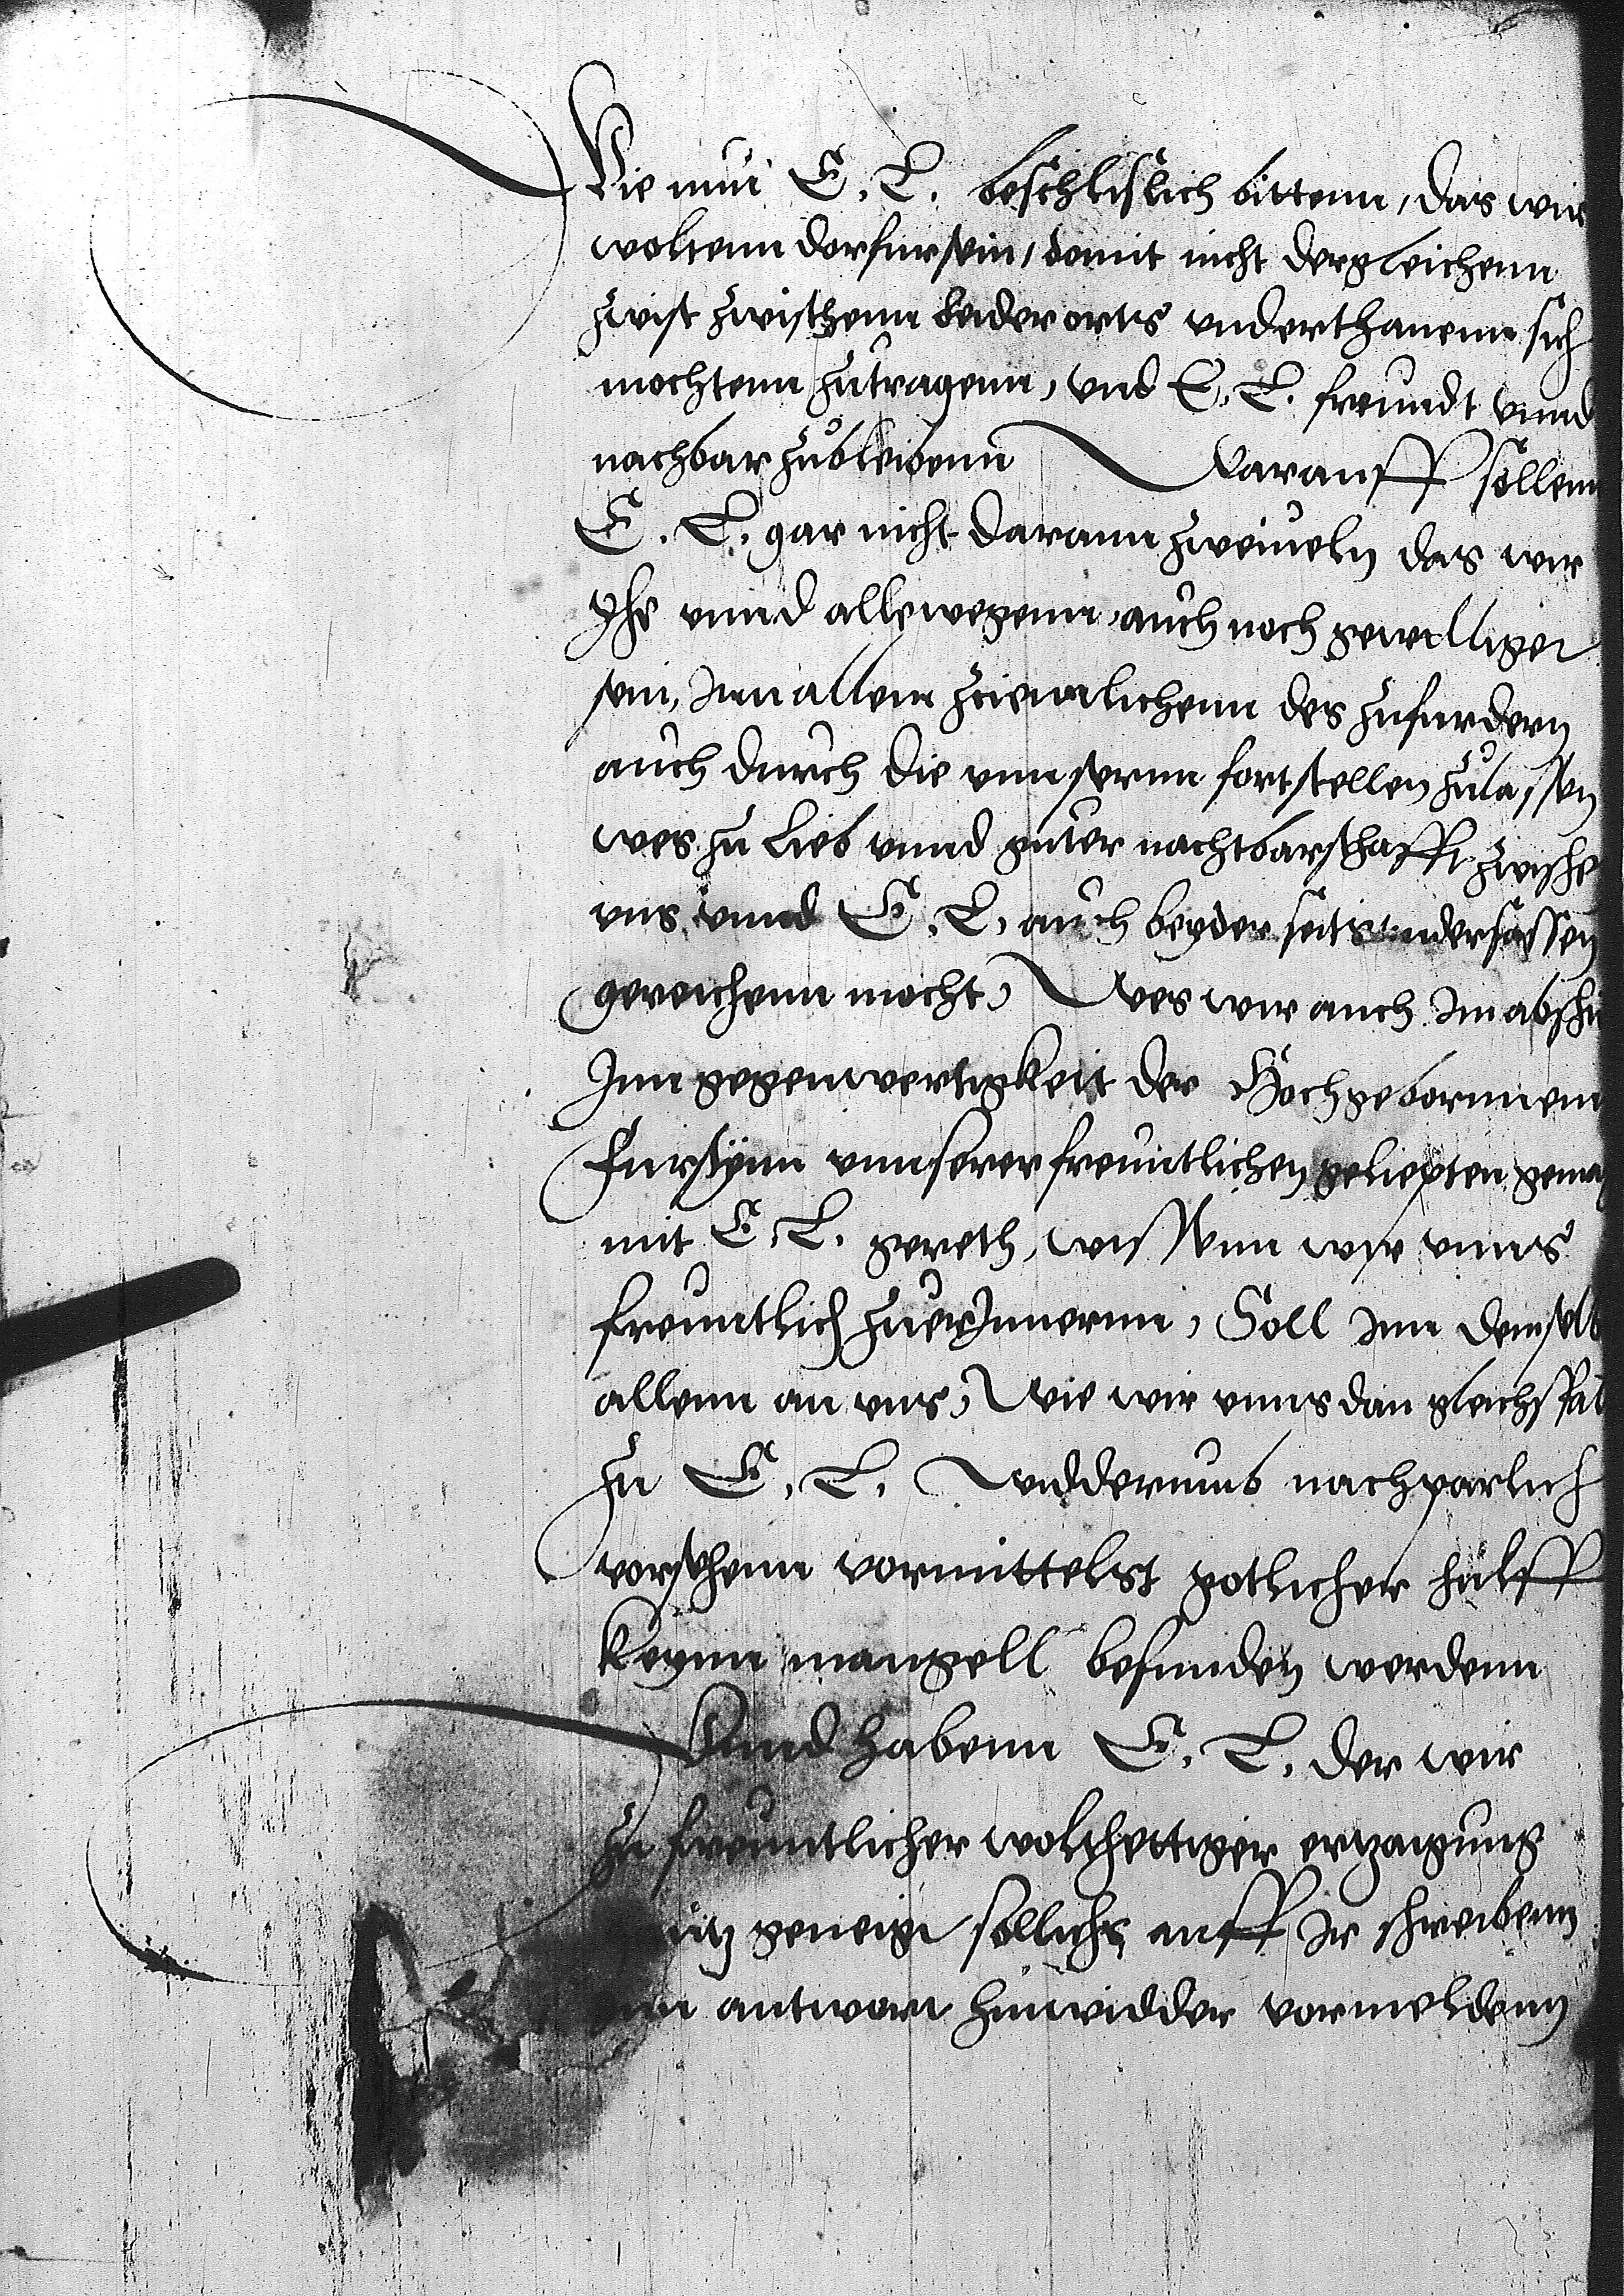 Wie nun E. L. beschlislich bittenn, das wir
woltenn dorfur sein, domit nicht dergleichenn
zwist zwischenn beider orts vnderthanenn sich
mochtenn zutragenn, vnd E. L. freundt vnnd
nachbar zubleibenn Darauff sollenn
E. L. gar nicht darann zweiueln das wir
Jhr vnnd allewegenn, auch noch gewilliget
sein, Jnn allem zcimlichenn des zufurdern
auch durch die vnnsernn fortstellen zulassen
was zu Lieb vnnd guter nachtbarschafft zwische
vns vnnd E. L. auch beyderseits vndersassen
gereichenn mocht, Wes wir auch Jm abschi
Jnn gegenwertigkeit der Hochgebornnenn
Furstynn vnnserer freuntlichen geliepten gema
mit E. L. gereth, wissenn wir vnns
freuntlich zuerJnnernn, Soll Jnn demselb
allenn an vns, Wie wir vnns dan gleichsfal
zu E. L. widderumb nachparlich
vorsehenn vormittelst gotlicher hulff
keynn mangell befunden werdenn
Vnnd habenn E. L. der wir
zu freuntlicher wolthettiger erzaigung
geneigt sollichs auff Jr schreibenn
antwort hinwidder vormeldenn